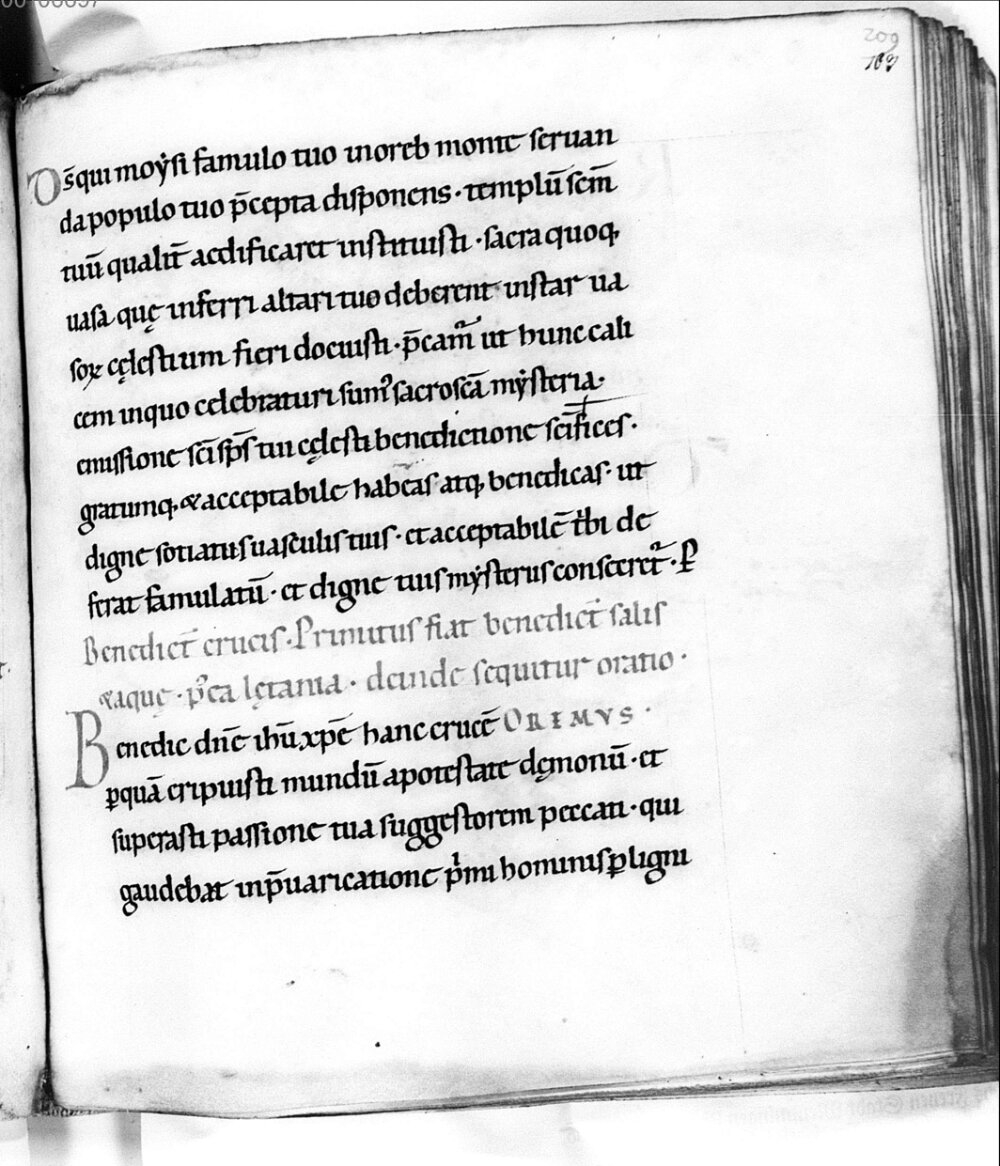 209
183
Ds̄ qui moẏsi famulo tuo in oreb monte seruan
da populo tuo p̄cepta disponens · templū scm̄
tuū qualit̄ aedificaret instituisti · sacra quoq;
uasa quę inferri altari tuo deberent instar ua
soꝝ cęlestium fieri docuisti · p̄camᷣ ut hunc cali
cem in quo celebraturi sumꝰ sacroscā mẏsteria ·
emissione sc̄i sp̄s tui cęlesti benedictione sc̄ifices ·
gratumq; & acceptabile habeas atq; benedicas · ut
digne sotiatus uasculis tuis · et acceptabilē tibi de
ferat famulatū · et digne tuis mẏsteriis consecretᷣ · P̄
Benedict̄ crucis · Primitus fiat benedict̄ salis
& aquę · p᷒ea lętania · deinde sequitur oratio ·
Benedic dn̄e ihū xp̄e hanc crucē OREMVS ·
ꝑ quā eripuisti mundū a potestate dęmonū · et
superasti passione tua suggestorem peccati · qui
gaudebat in p̄uaricatione pⁱmi hominis ꝑ ligni